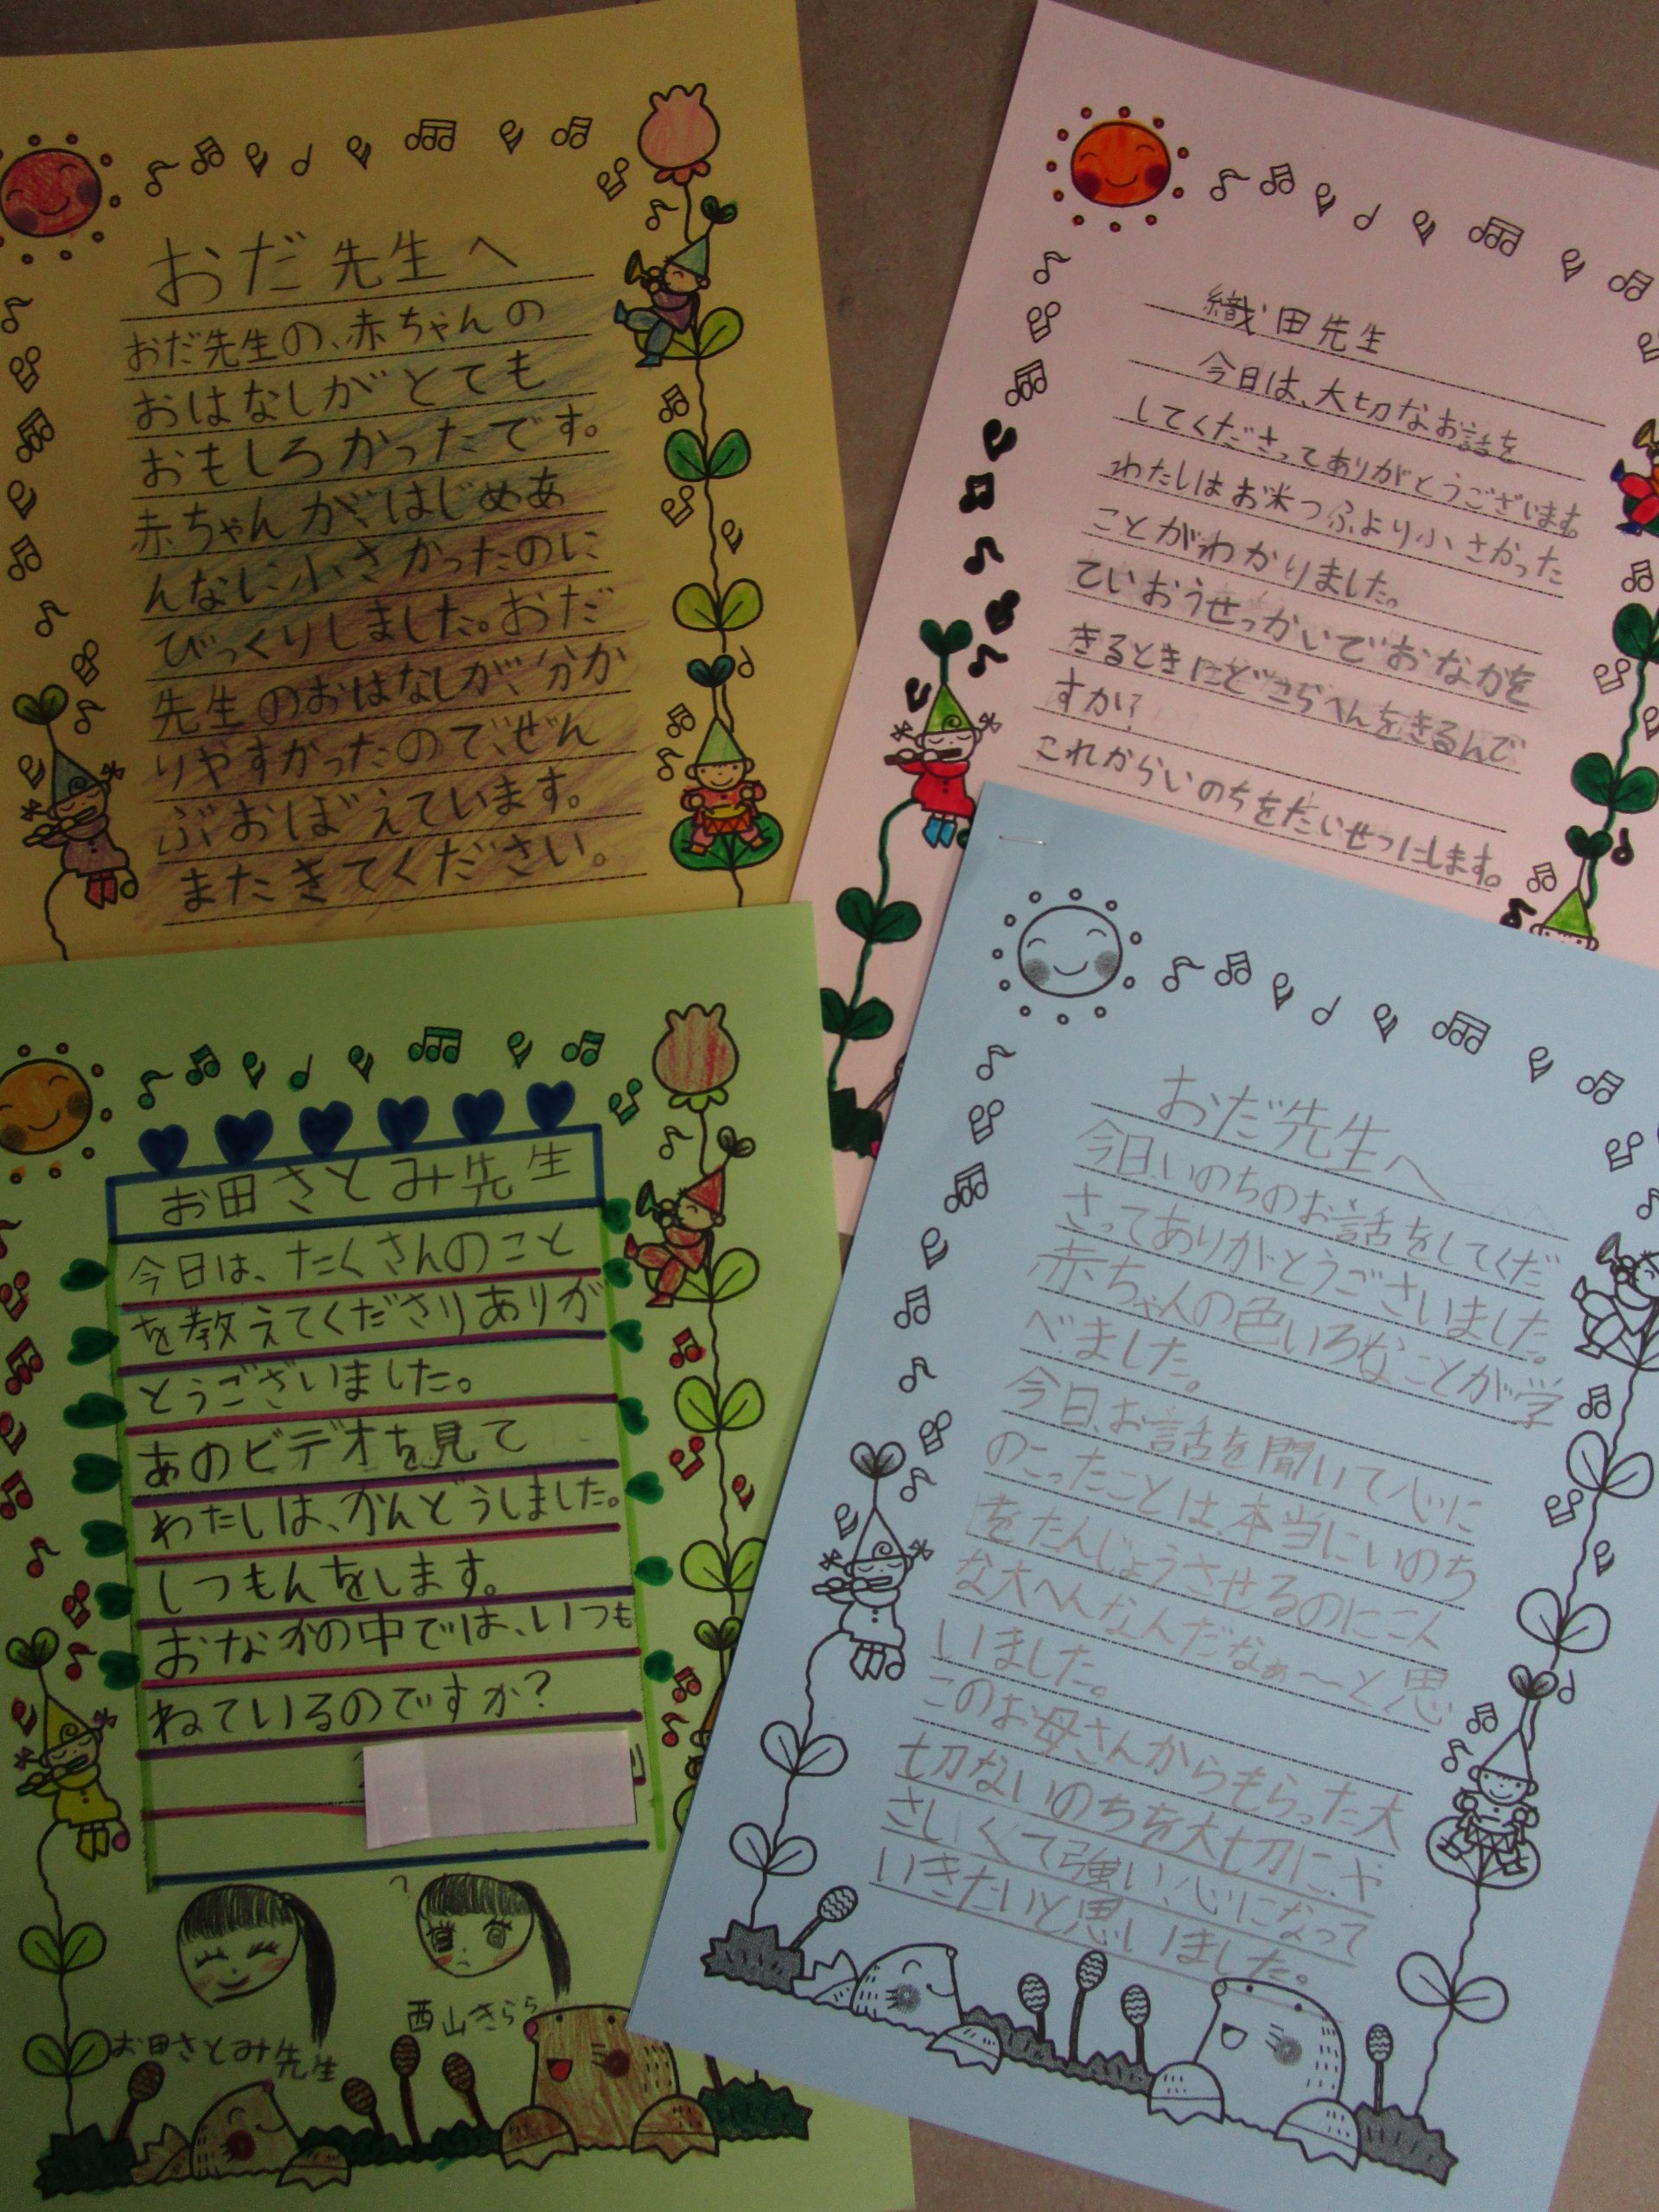 おだ先生へ
おだ先生の、赤ちゃんの
おはなしがとても
おもしろかったです。
赤ちゃんが、はじめあ
んなに小さかったのに
びっくりしました。おだ
先生のおはなしが、分か
りやすかったので、ぜん
ぶおぼえています。
またきてください。
織田先生
今日は、大切なお話を
してくださってありがとうございます。
わたしはお米つぶより小さかった
ことがわかりました。
ていおうせっかいでおなかを
きるときにどさらへんをきるんで
すか?
これからいのちをたいせつにします。
お田さとみ先生
今日は、たくさんのこと
を教えてくださりありが
とうございました。
あのビデオを見て
わたしは、かんどうしました。
しつもんをします。
おなかの中では、いつも
ねているのですか?
お田さとみ先生
西山きらら
おだ先生へ
今日、いのちのお話をしてくだ
さってありがとうございました。
赤ちゃんの色いろなことが学
べました。
今日、お話を聞いて心に
のこったことは、本当にいのち
をたんじょうさせるのにこん
な大へんなんだなぁ〜と思
いました。
このお母さんからもらった大
切ないのちを大切に、や
さしくて強い、心になって
いきたいと思いました。